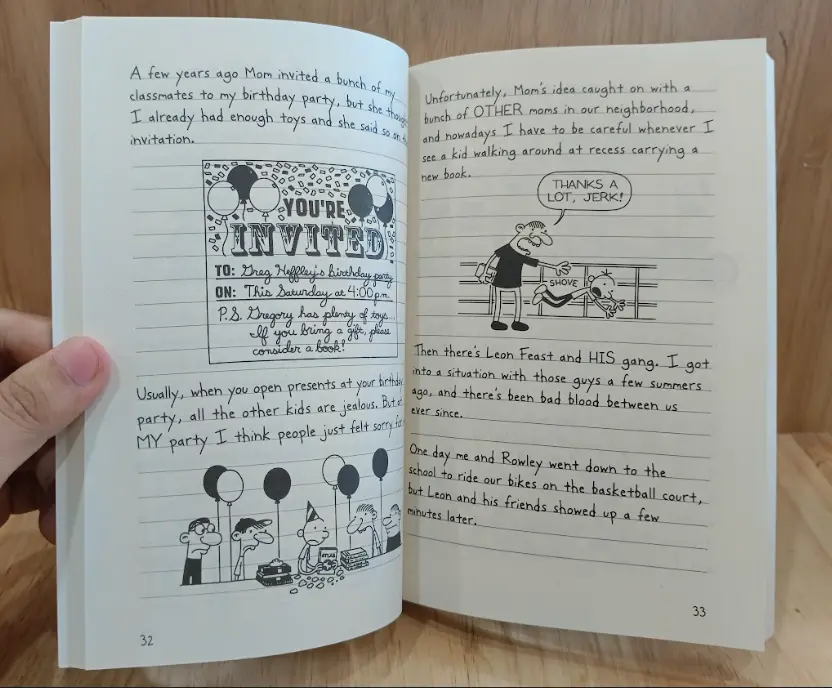 A few years ago Mom invited a bunch of my
classmates to my birthday party, but she
I already had enough toys and she said so on
invitation.
YOU'RE
INVITED
TO: Greg Heffley's birthday party
ON: This Saturday at 4:00 p.m.
P.S. Gregory has plenty of toys...
If you bring a gift, please
consider a book!
Usually, when you open presents at your birthday
party, all the other kids are jealous. But
MY party I think people just felt sorry
ATLAS
32
Unfortunately, Mom's idea caught on with a
bunch of OTHER moms in our neighborhood,
and nowadays I have to be careful whenever I
see a kid walking around at recess carrying a
new book.
THANKS A
LOT, JERK!
SHOVE
Then there's Leon Feast and HIS gang. I got
into a situation with those guys a few summers
ago, and there's been bad blood between us
ever since.
One day me and Rowley went down to the
school to ride our bikes on the basketball court,
but Leon and his friends showed up a few
minutes later.
33